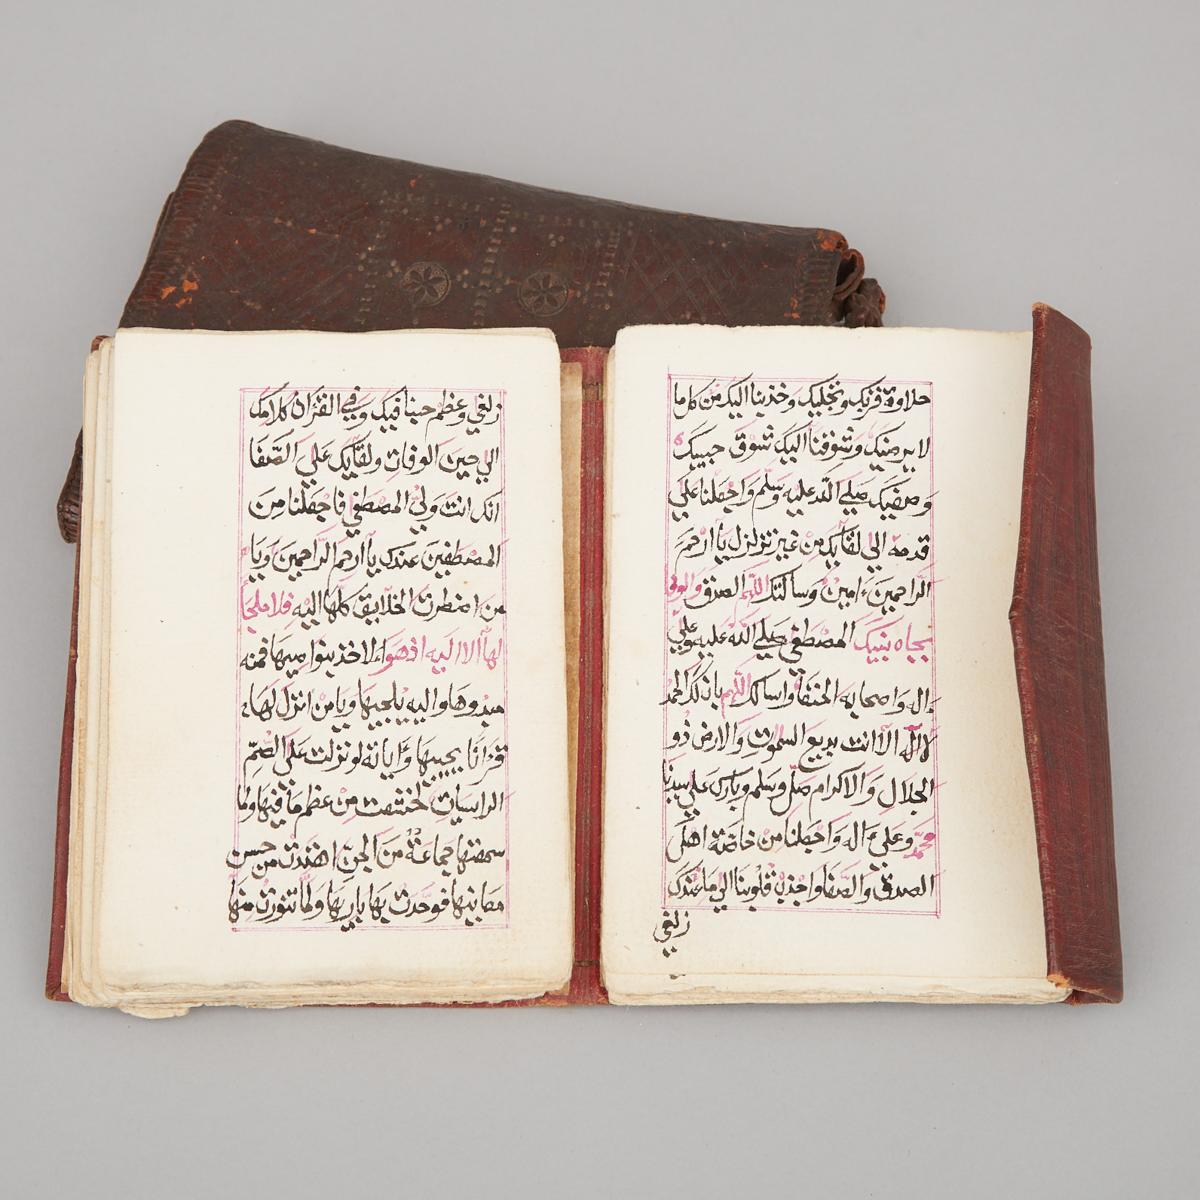 حلاوة قربك وتجليك وخذ بنا اليك من كل ما
لا يرضيك وشوقنا اليك شوق حبيبك
وصفيك صلي الله عليه وسلم واجعلنا علي
قدمه الي لقايك من غير تزلزل يا ارحم
الراحمين ءامين وسالتك اللهم الصدق والوفا
بجاه نبيك المصطفي صلي الله عليه وعلي
ءاله واصحابه الحنفا واسالك اللهم بان لك الحمد
لا اله الا انت بديع السموات والارض ذو
الجلال والاكرام صل وسلم وبارك علي سيدنا
محمد وعلي ءاله واجعلنا من خاصة اهل
الصدق والصفا واجذب قلوبنا الي ما عندك
زلفي
زلفي وعظم حبنا فيك وفي القران كلامك
الي حين الوفات ولقايك علي الصفا
انك انت ولي المصطفي فاجعلنا من
المصطفين عندك يا ارحم الراحمين ويا
من اضطرت الخلايق كلها اليه فلا ملجا
لها الا اليه اذ هو ءاخذ بنواصيها فمنه
مبدوها واليه يلجيها ويا من انزل لها
قرءانا يجيبها وءاياته لو نزلت علي الصم
الراسيات لخشعت من عظم ما فيها ولما
سمعتها جماعة من الجن اهتدت من حسن
معانيها فوحدت بها باريها ولما تنورت منها